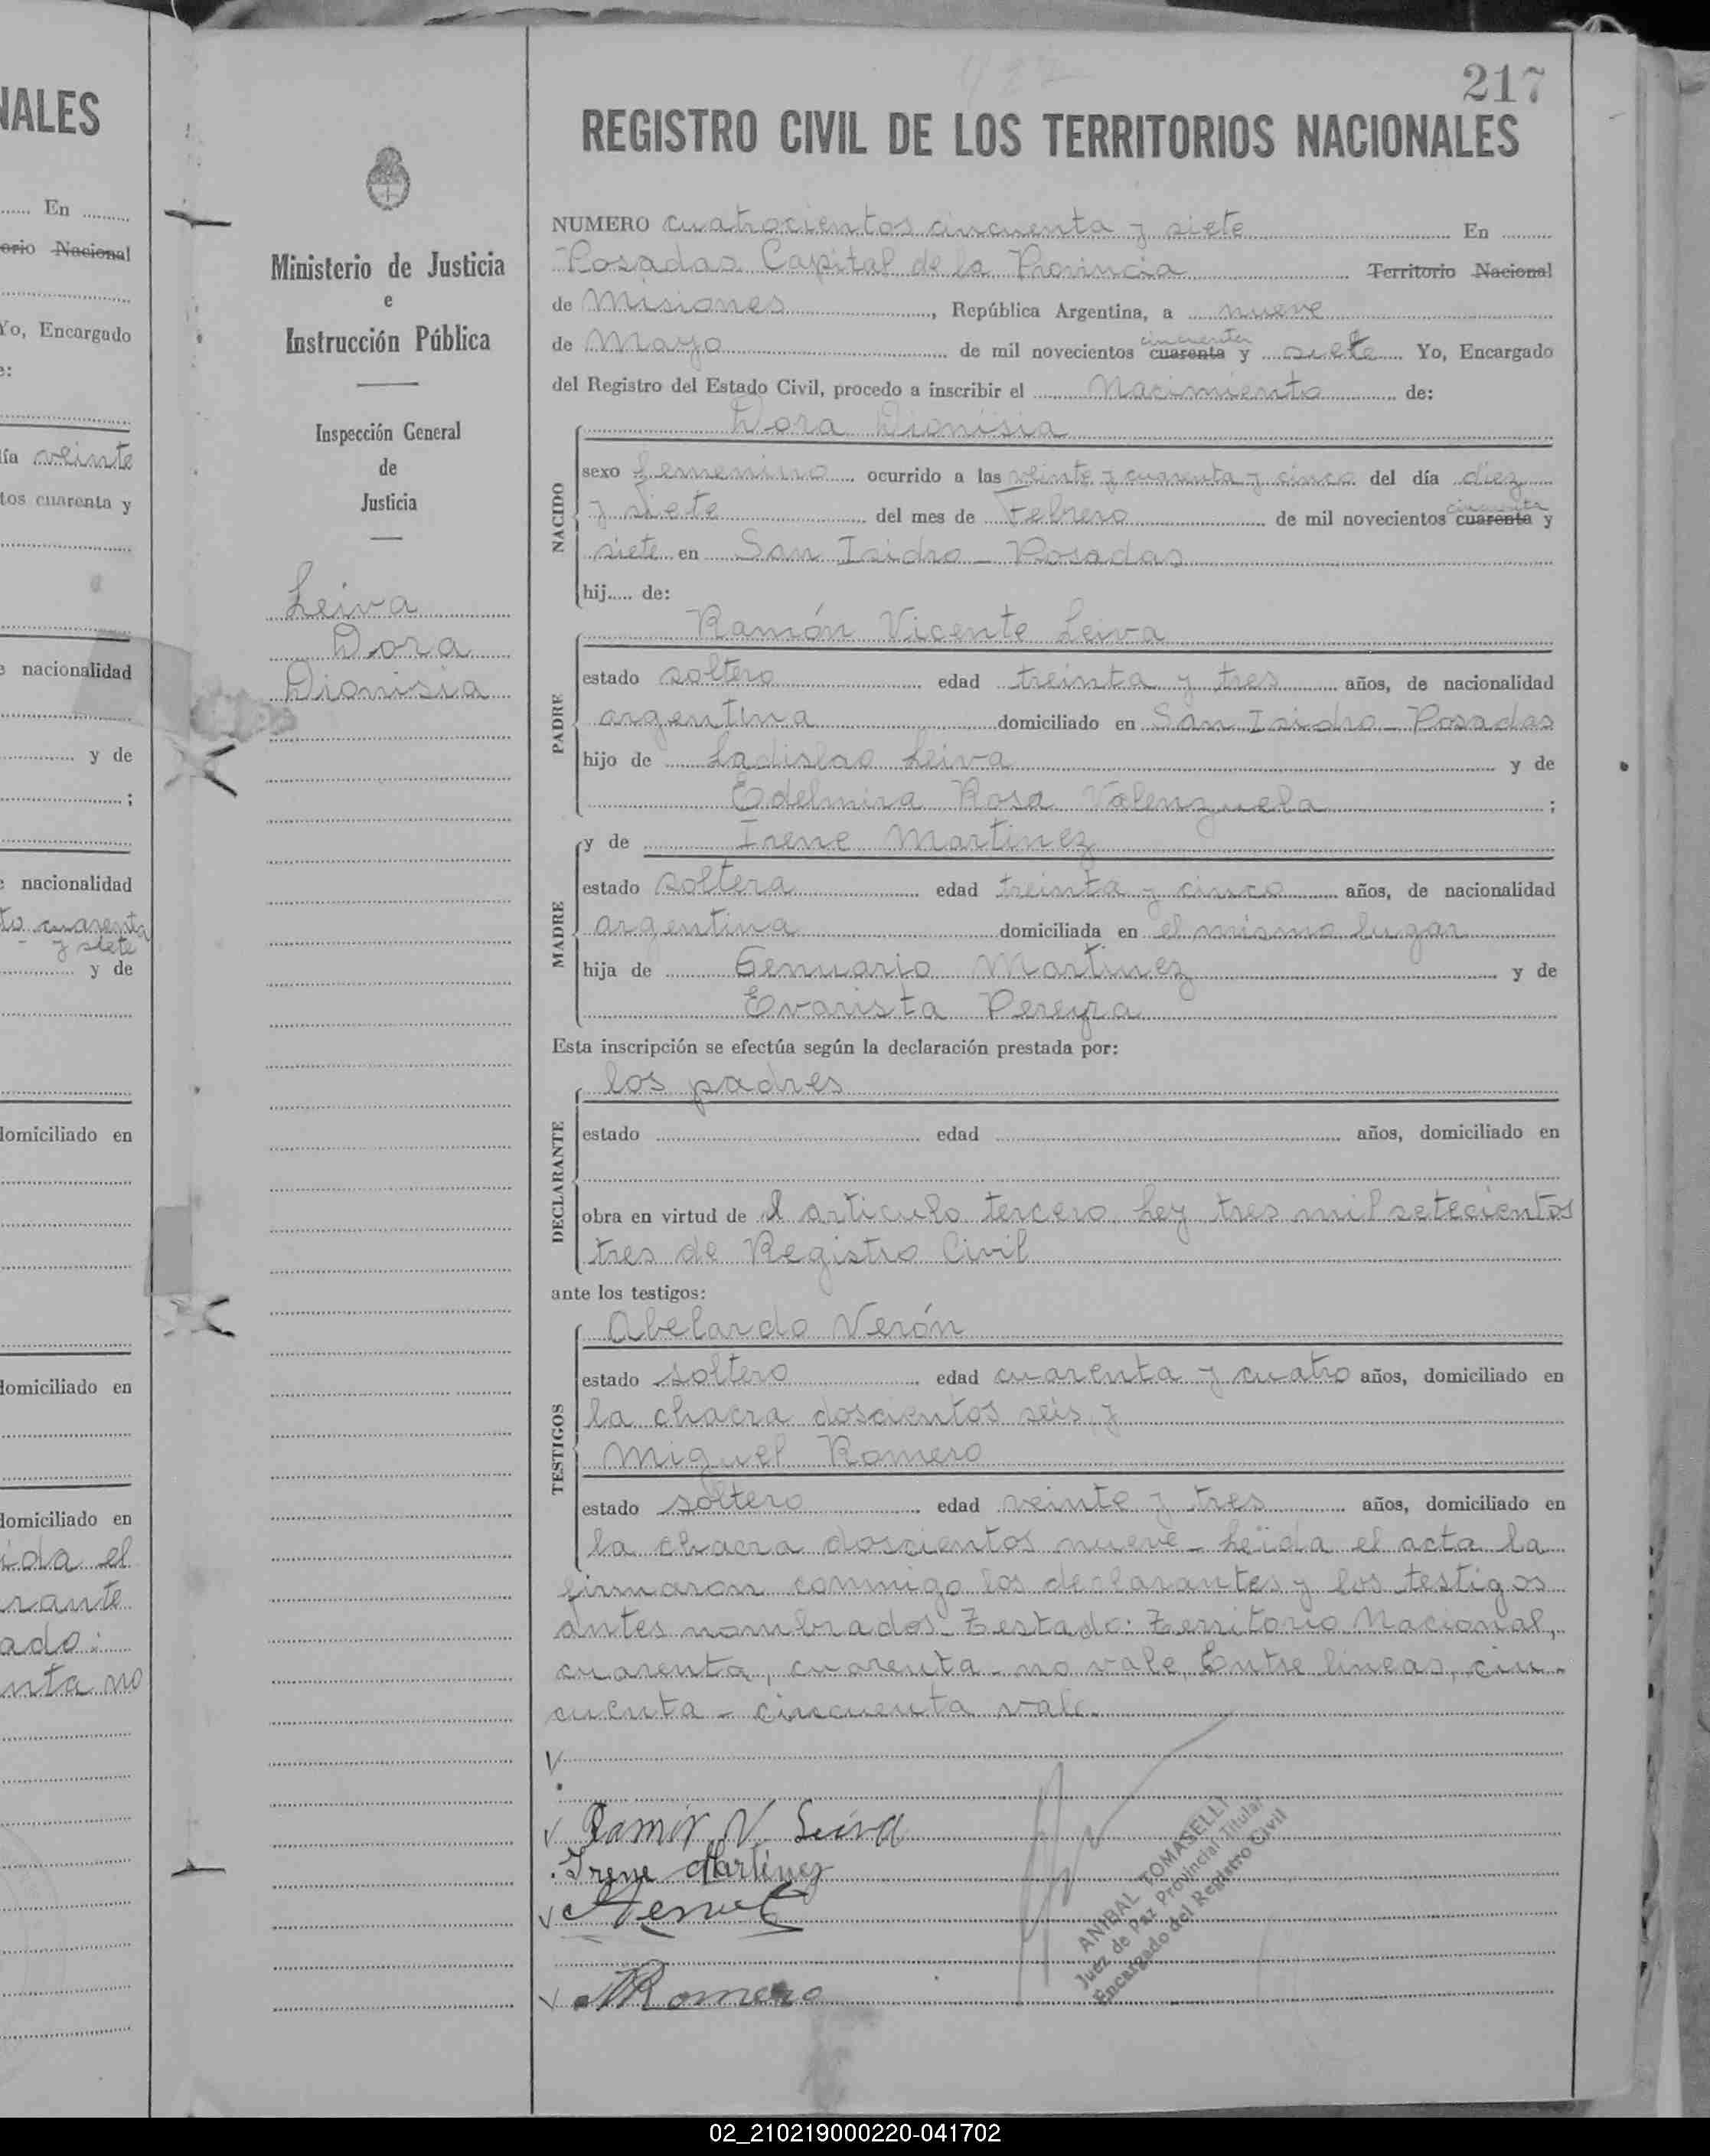 NALES
En
orio Nacional
Yo, Encargado
e:
ía veinte
tos cuarenta y
e nacionalidad
y de
;
e nacionalidad
to cuarenta
- y siete
y de
domiciliado en
domiciliado en
domiciliado en
ida el
rante
ado:
nta no
Ministerio de Justicia
e
Instrucción Pública
Inspección General
de
Justicia
Leiva
Dora
Dionisia
217
REGISTRO CIVIL DE LOS TERRITORIOS NACIONALES
NUMERO cuatrocientos cincuenta y siete En
Posadas Capital de la Provincia Territorio Nacional
de Misiones, República Argentina, a nueve
cincuenta
de Mayo de mil novecientos cuarenta y siete Yo, Encargado
del Registro del Estado Civil, procedo a inscribir el Nacimiento de:
Dora Dionisia
NACIDO
sexo femenino ocurrido a las veinte y cuarenta y cinco del día diez
cincuenta
y siete del mes de Febrero de mil novecientos cuarenta y
siete en San Isidro - Posadas
hij..... de:
Ramón Vicente Leiva
PADRE
estado soltero edad treinta y tres años, de nacionalidad
argentina domiciliado en San Isidro - Posadas
hijo de Ladislao Leiva y de
Edelmira Rosa Valenzuela ;
y de Irene Martinez
MADRE
estado soltera edad treinta y cinco años, de nacionalidad
argentina domiciliada en el mismo lugar
hija de Genuario Martinez y de
Evarista Pereyra
Esta inscripción se efectúa según la declaración prestada por:
los padres
DECLARANTE
estado edad años, domiciliado en
obra en virtud de l articulo tercero, Ley tres mil setecientos
tres de Registro Civil
ante los testigos:
Abelardo Verón
TESTIGOS
estado soltero edad cuarenta y cuatro años, domiciliado en
la chacra doscientos seis, y
Miguel Romero
estado soltero edad veinte y tres años, domiciliado en
la chacra doscientos nueve - Leida el acta la
firmaron conmigo los declarantes y los testigos
antes nombrados - Testado: Territorio Nacional,
cuarenta, cuarenta - no vale, Entre lineas, cin-
cuenta - cincuenta vale.
Ramón V Leiva
Irene Martinez
MRomero
ANIBAL TOMASELLI
Juez de Paz Provincial Titular
Encargado del Registro Civil
02_210219000220-041702